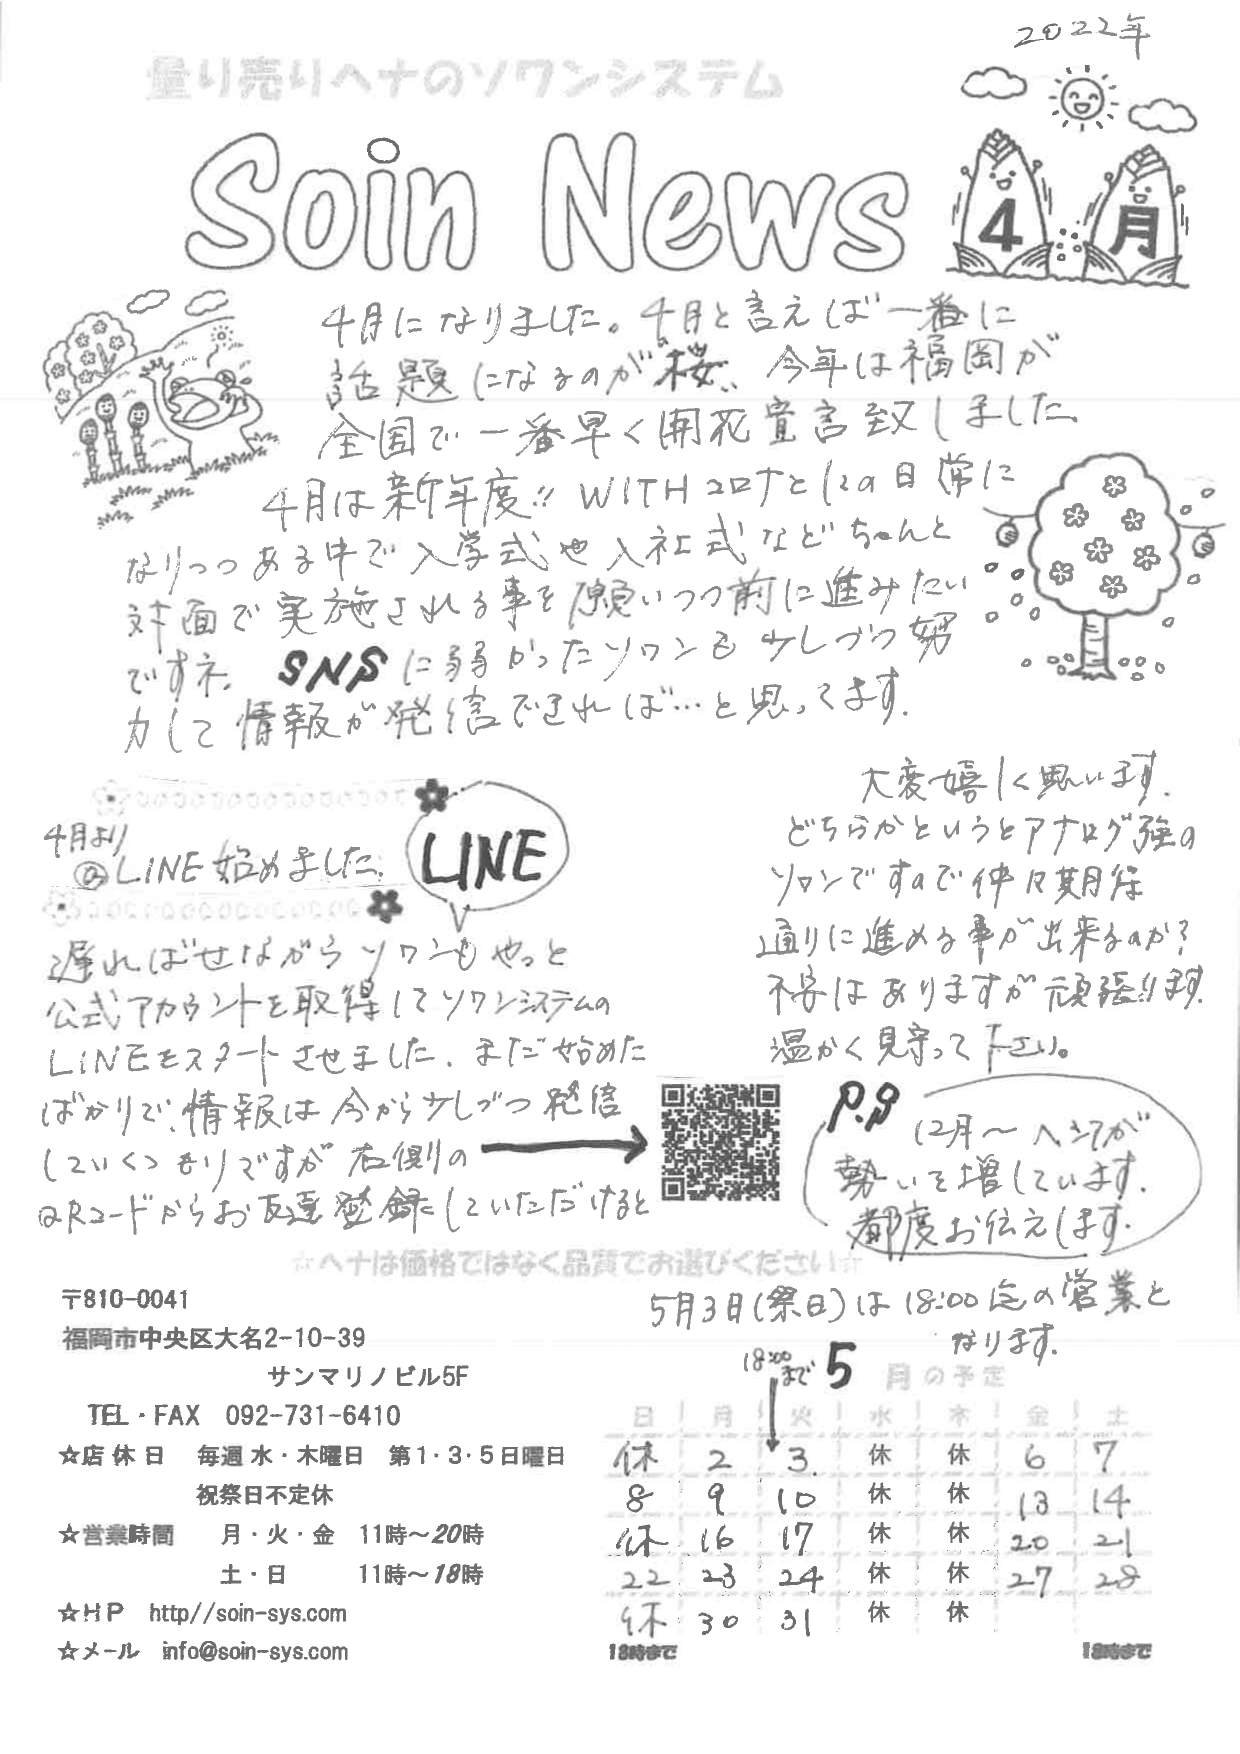 2022年
量り売りヘナのソワンシステム
Soin News
4月
4月になりました。4月と言えば一番に
話題になるのが"桜"、今年は福岡が
全国で一番早く開花宣言致しました。
4月は新年度!! WITHコロナとしての日常に
なりつつある中で入学式や入社式などちゃんと
対面で実施される事を願いつつ前に進みたい
ですネ。SNSに弱かったソワンも少しづつ努
力して情報が発信できれば…と思ってます。
4月より
@LINE始めました。
LINE
遅ればせながらソワンもやっと
公式アカウントを取得してソワンシステムの
LINEをスタートさせました。まだ始めた
ばかりで、情報は今から少しづつ発信
していくつもりですが右側の
QRコードからお友達登録していただけると
大変嬉しく思います。
どちらかというとアナログ強の
ソワンですので仲々期待
通りに進める事が出来るのか?
不安はありますが頑張ります。
温かく見守って下さい。
P.S
12月〜ヘナが
勢いを増しています。
都度お伝えします。
☆ヘナは価格ではなく品質でお選びください☆
〒810-0041
福岡市中央区大名2-10-39
サンマリノビル5F
TEL・FAX 092-731-6410
☆店休日 毎週水・木曜日 第1・3・5日曜日
祝祭日不定休
☆営業時間 月・火・金 11時〜20時
土・日 11時〜18時
☆HP http//soin-sys.com
☆メール info@soin-sys.com
5月3日(祭日)は18:00迄の営業と
なります。
18:00まで
5月の予定
日 月 火 水 木 金 土
休 2 3 休 休 6 7
8 9 10 休 休 13 14
休 16 17 休 休 20 21
22 23 24 休 休 27 28
休 30 31 休 休
18時まで 18時まで